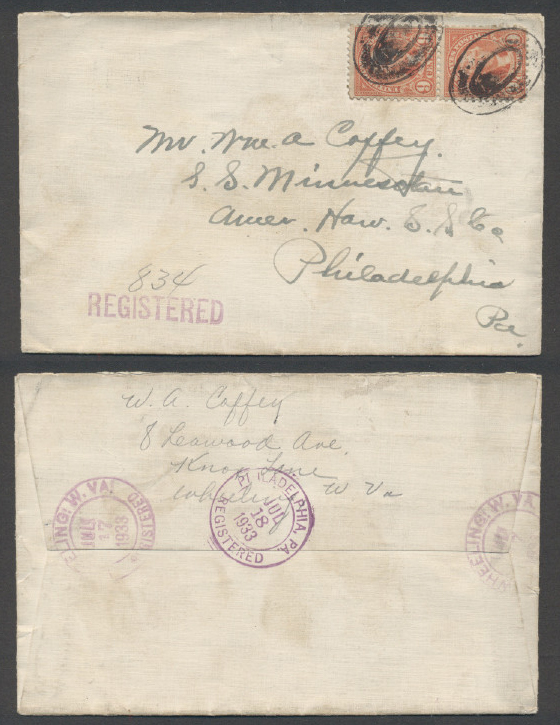 Mr. Wm. A Coffey.
S. S. Minnesotan
Amer. Haw. S. S. Co
Philadelphia
Pa.
834
REGISTERED
6
W. A. Coffey
8 Leawood Ave.
Knox Lane
Wheeling W. Va
ELING, W. VA.
JUL
17
1933
REGISTERED
PHILADELPHIA, PA.
JUL
18
1933
REGISTERED
WHEELING, W. VA